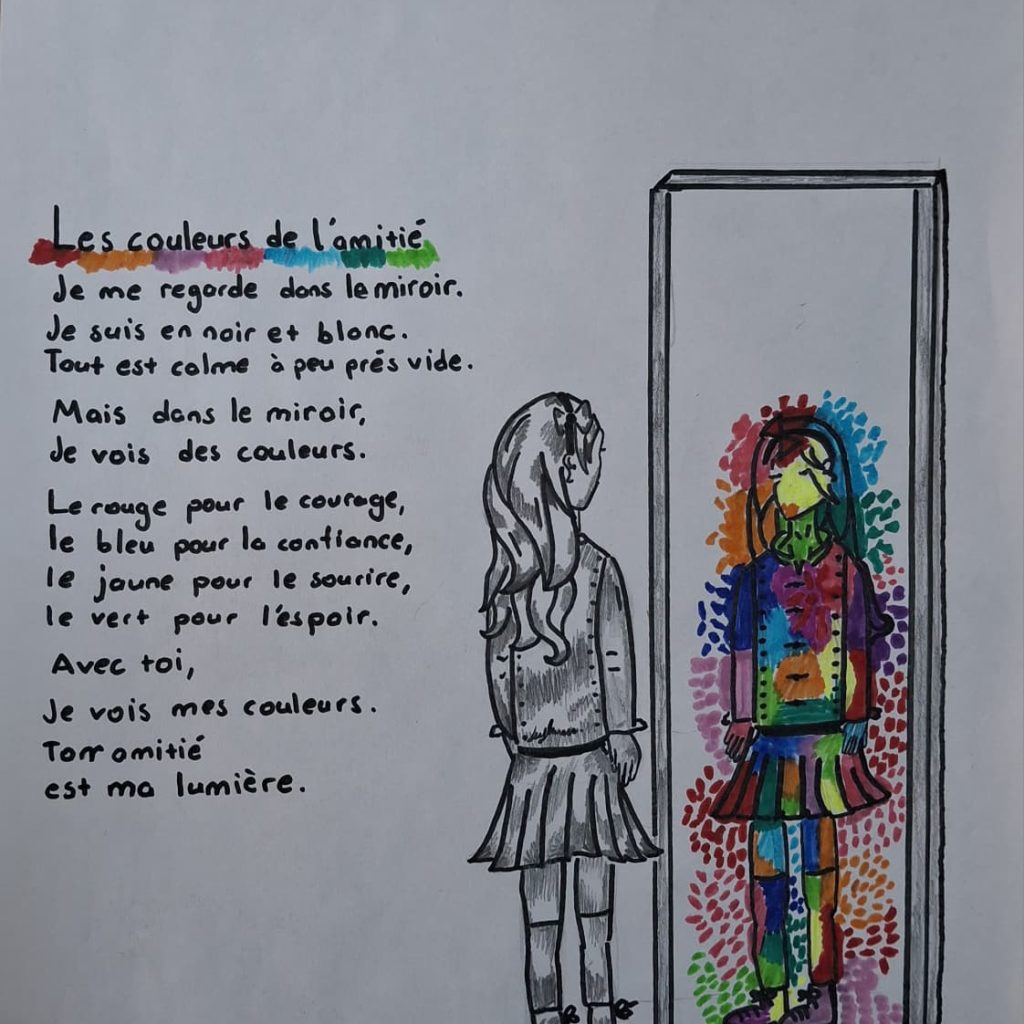 Les couleurs de l'amitié
Je me regarde dans le miroir.
Je suis en noir et blanc.
Tout est calme à peu prés vide.
Mais dans le miroir,
Je vois des couleurs.
Le rouge pour le courage,
le bleu pour la confiance,
le jaune pour le sourire,
le vert pour l'éspoir.
Avec toi,
Je vois mes couleurs.
Ton amitié
est ma lumière.